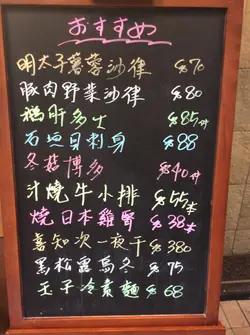 おすすめ
明太子薯蓉沙律 $70
豚肉野菜沙律 $80
鵝肝多士 $85/件
石垣貝刺身 $88
冬菇博多 $40/件
汁燒牛小排 $55/本
燒日本雞腎 $38/本
喜知次一夜干 $380
黑松露烏冬 $75
玉子冷素麵 $68